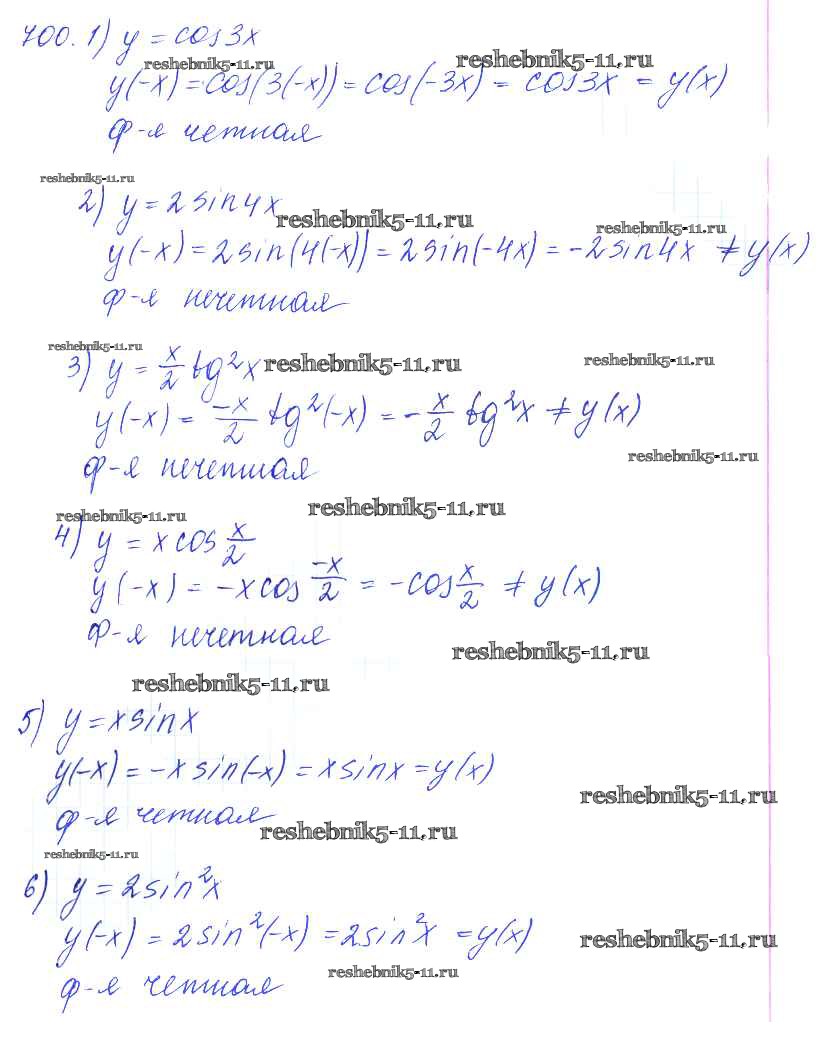 700. 1) y = cos3x
reshebnik5-11.ru reshebnik5-11.ru
y(-x) = cos(3(-x)) = cos(-3x) = cos3x = y(x)
ф-я четная
reshebnik5-11.ru
2) y = 2sin4x
reshebnik5-11.ru reshebnik5-11.ru
y(-x) = 2sin(4(-x)) = 2sin(-4x) = -2sin4x ≠ y(x)
ф-я нечетная
reshebnik5-11.ru
3) y = x/2 tg²x reshebnik5-11.ru reshebnik5-11.ru
y(-x) = -x/2 tg²(-x) = -x/2 tg²x ≠ y(x)
ф-я нечетная reshebnik5-11.ru
reshebnik5-11.ru reshebnik5-11.ru
4) y = x cos x/2
y(-x) = -x cos -x/2 = -cos x/2 ≠ y(x)
ф-я нечетная
reshebnik5-11.ru
reshebnik5-11.ru
5) y = x sin x
y(-x) = -x sin(-x) = x sin x = y(x)
reshebnik5-11.ru
ф-я четная reshebnik5-11.ru
reshebnik5-11.ru
6) y = 2sin²x
y(-x) = 2sin²(-x) = 2sin²x = y(x) reshebnik5-11.ru
ф-я четная reshebnik5-11.ru